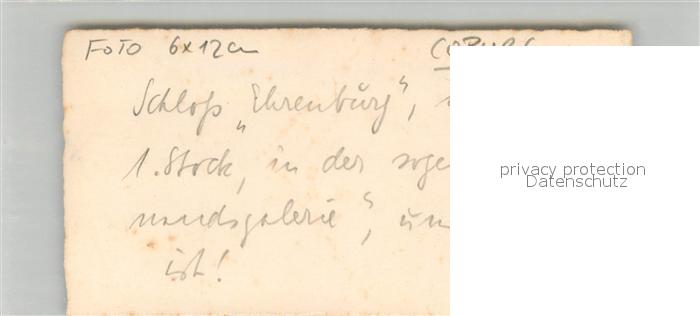 FOTO 6x12cm COBURG
Schloß „Ehrenburg",
1. Stock, in der soge
nandsgalerie", un
ist!
privacy protection
Datenschutz